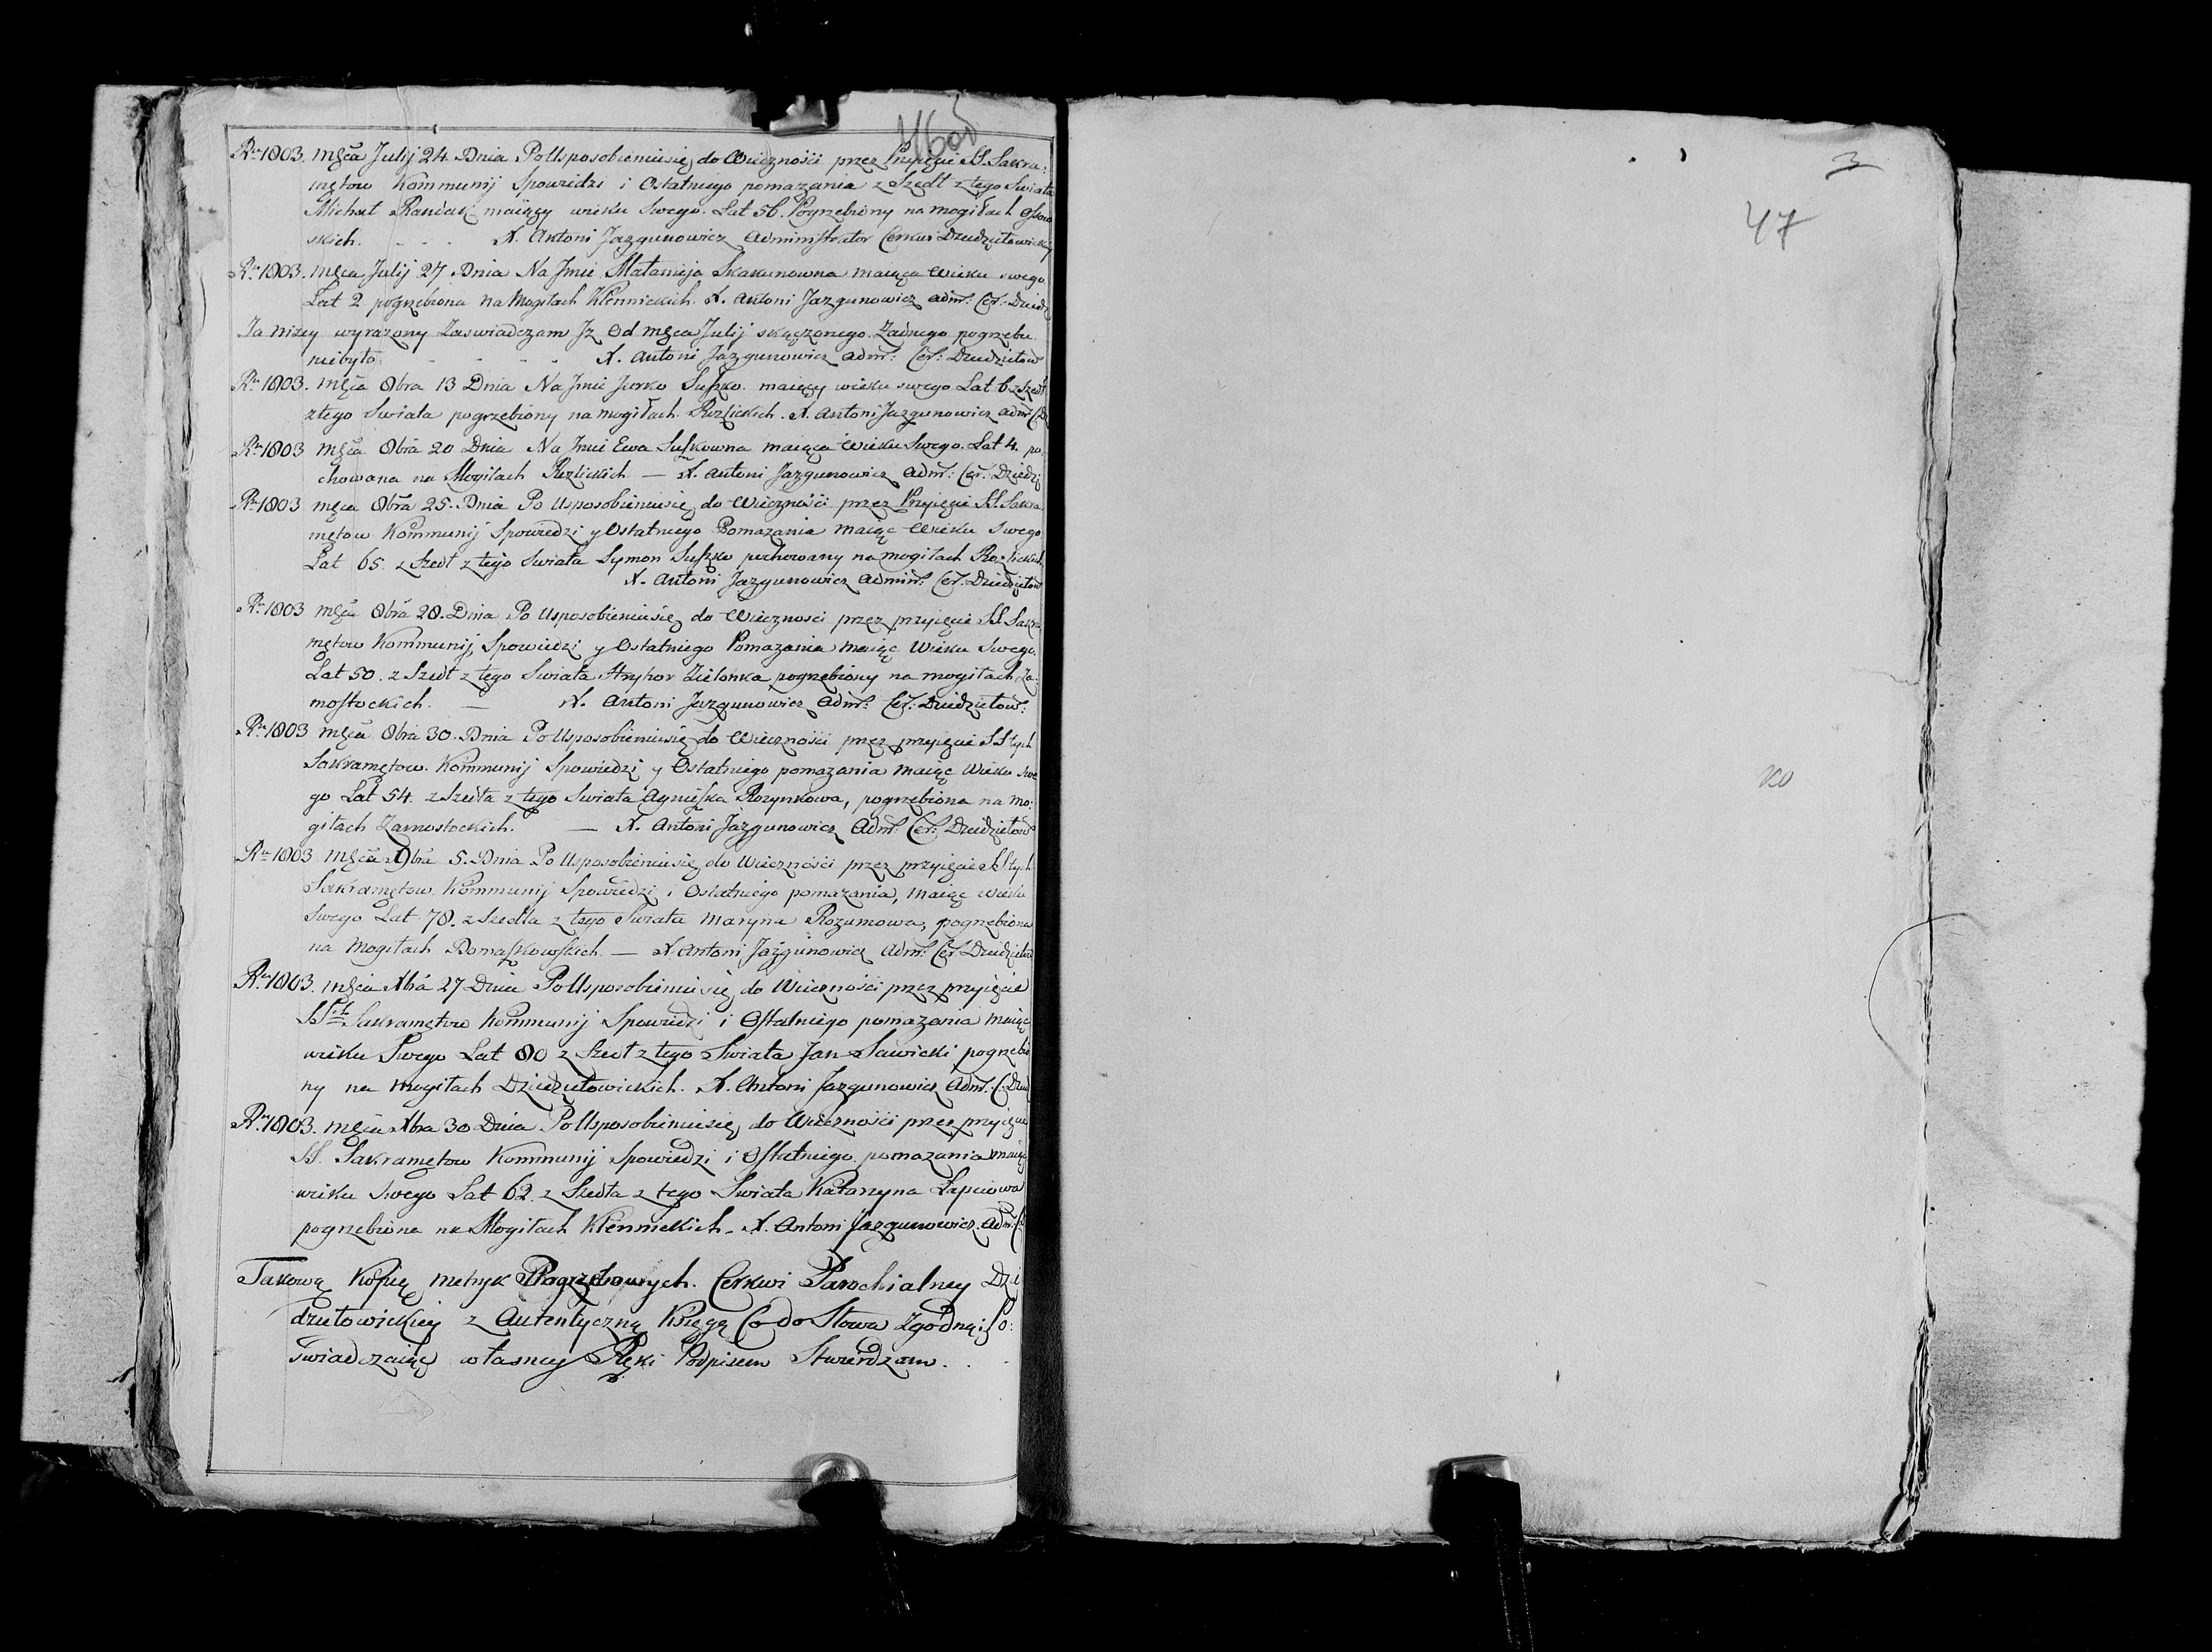 46об
Ru 1803. Mscа Julij 24. Dnia Po Usposobieniusię do Wieczności przez Przyięcie SS. Sakra:
mętow Kommunij Spowiedzi i Ostatniego pomazania z Szedł z tego Swiata
Michał maiący wieku Swego. Lat 56. Pogrzebiony na mogiłach
skich. X. Antoni Jazgunowicz Administrator Cerkwi Dziedziłowickiey
Ru 1803. Msca Julij 27. Dnia Na Jmie Małanija Skakunowna maiąca Wieku swego
Lat 2 pogrzebiona na Mogiłach Klennickich. X. Antoni Jazgunowicz adm: Cer: Dziedz
Ja niżey wyrażony Zaswiadczam Iż Od Msca Julij skączonego. Żadnego pogrzebu
niebyło. X. Antoni Jazgunowicz adm: Cer: Dziedziłow
Ru 1803. Msca 8bra 13 Dnia Na Jmie Jurko Suszko. maiący wieku swego Lat 6 z Szedł
ztego Swiata pogrzebiony na mogiłach. X. Antoni Jazgunowicz adm
Ru 1803 Msca 8bra 20 Dnia Na Jmie Ewa Suszkowna maiąca Wieku Swego. Lat 4. po
chowana na Mogiłach — X. Antoni Jazgunowicz adm: Cer: Dziedzi
Ru 1803 Msca 8bra 25. Dnia Po Usposobieniusię do Wieczności przez Przyięcie SS. Sakra
mętow Kommunij Spowiedzi y Ostatniego Pomazania maiąc Wieku Swego
Lat 65. z Szedł z tego Swiata Symon Suszko pochowany na mogiłach
X. Antoni Jazgunowicz admin: Cer: Dziedziłow
Ru 1803 Msca 8bra 28. Dnia Po Usposobieniusię do Wieczności przez przyięcie SS. Sakra
mętow Kommunij Spowiedzi y Ostatniego Pomazania maiąc Wieku Swego.
Lat 50. z Szedł z tego Swiata Hryhor Zielonka pogrzebiony na mogiłach Za:
mostockich. — X. Antoni Jazgunowicz Adm: Cer: Dziedziłow:
Ru 1803 Msca 8bra 30. Dnia Po Usposobieniusię do Wieczności przez przyięcie SStych
Sakramętow. Kommunij Spowiedzi y Ostatniego pomazania maiąc Wieku swe
go Lat 54. z Szedła z tego Swiata Agnieszka Rozynkowa, pogrzebiona na mo:
giłach Zamostockich. — X. Antoni Jazgunowicz Adm: Cer: Dziedziłow
Ru 1803 Msca 9bra 5. Dnia Po Usposobieniusię do Wieczności przez przyięcie SStych
Sakramętow Kommunij Spowiedzi i Ostatniego pomazania, maiąc wieku
Swego Lat 70. z Szedła z tego Swiata Maryna Rozumowa, pogrzebiona
na Mogiłach Domaszkowskich. — X. Antoni Jazgunowicz Adm: Cer: Dziedziłow
Ru 1803. Msca Xbra 27 Dnia Po Usposobieniusię do Wieczności przez przyięcie
SSch Sakramętow Kommunij Spowiedzi i Ostatniego pomazania maiąc
wieku Swego Lat 80 z Szedł z tego Swiata Jan Sawicki pogrzebio
ny na Mogiłach Dziedziłowickich. X. Antoni Jazgunowicz Adm: C: Dzied
Ru 1803. Msca Xbra 30 Dnia Po Usposobieniusię do Wieczności przez przyięcie
SS. Sakramętow Kommunij Spowiedzi i Ostatniego pomazania maiąc
wieku swego Lat 62. z Szedła z tego Swiata Katarzyna Łapciowa
pogrzebiona na Mogiłach Klennickich. X. Antoni Jazgunowicz. Adm:
Takową Kopią Metryk Pogrzebowych. Cerkwi Parochialney Dzi
dziłowickiey z Autentyczną Księgą Co do Słowa Zgodną; Po:
Swiadczaiąc własney Ręki Podpisem Stwierdzam.
3
47